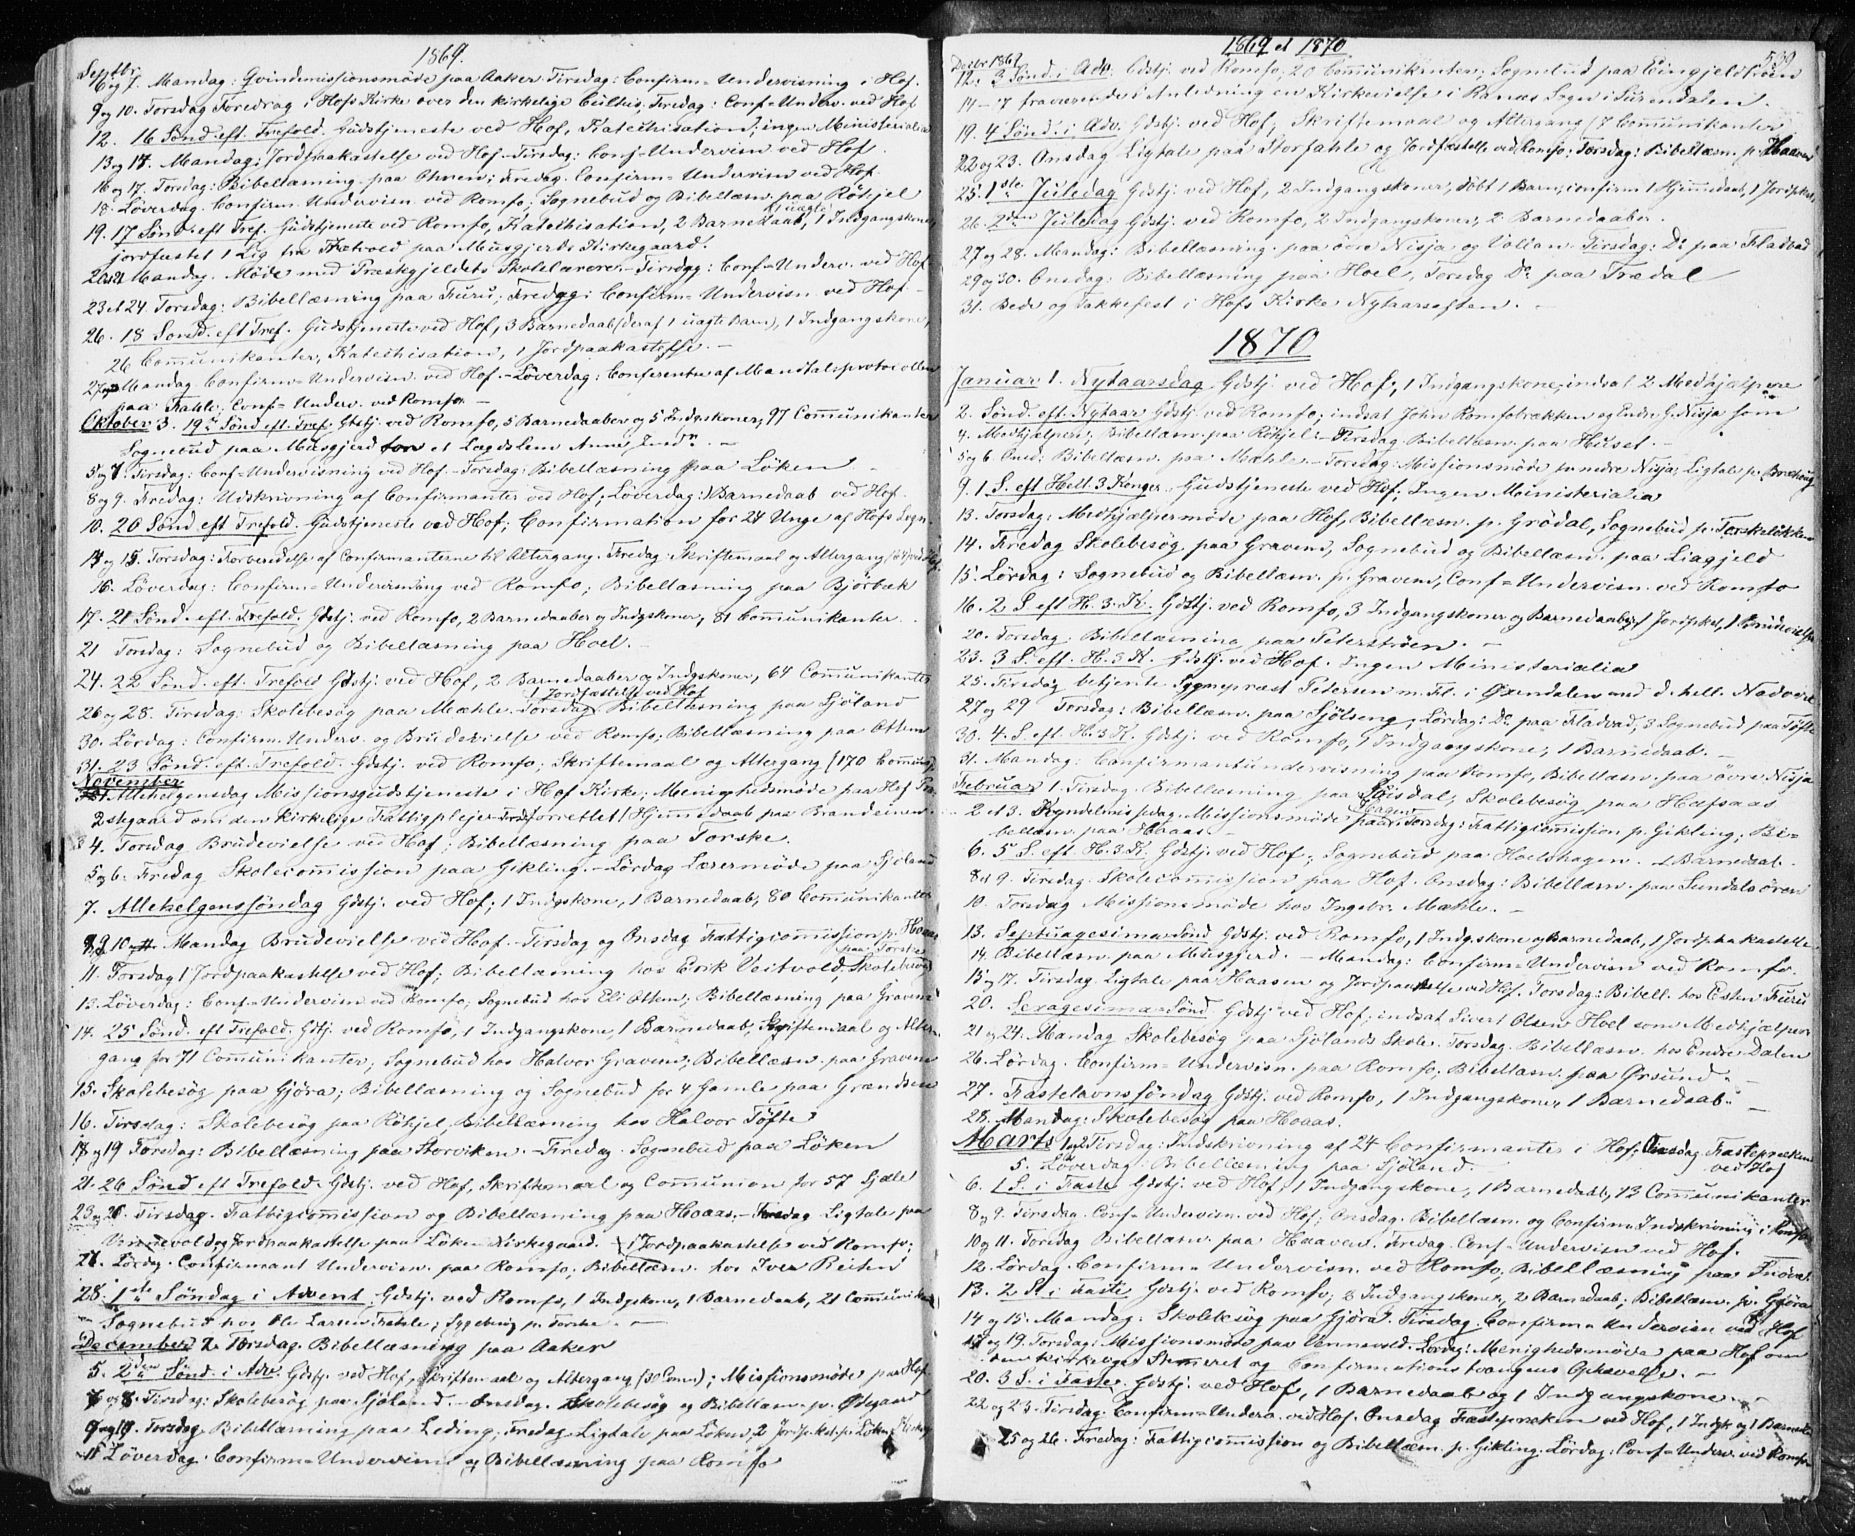 1869.
Septbr.
6 og 7. Mandag: Qvindemissionsmøde paa Aaker. Tirsdag: Confirm-Underviisning i Hof.
9 og 10. Torsdag Foredrag i Hofs Kirke over den kirkelige Cultus, Fredag: Conf-Underv. ved Hof
12. 16 Sønd. eft. Trefold. Gudstjeneste ved Hof, Katechisation; ingen Ministerialia
13 og 14. Mandag: Jordpaakastelse ved Hof. Tirsdag: Conf-Undervisn ved Hof.
16 og 17. Torsdag: Bibellæsning paa Ohren; Fredag. Confirm-Undervisn ved Hof.
18. Løverdag. Confirm-Undervisn ved Romfo; Sognebud og Bibellæsn. paa Röhjel
19. 17 Sønd. eft. Tref. Gudstjeneste ved Romfo, Katechisation, 2 Barnedaab, (1 uægte) 1 Indgangskone,
jordfæstet 1 Lig fra paa Musgjerds Kirkegaard.
20 et 21 Mandag. Møde med Præstegjeldets Skolelærere. Tirsdag: Conf-Underv. ved Hof
23 et 24 Torsdag: Bibellæsning paa Furu; Fredag: Confirm-Undervisn ved Hof
26. 18 Sønd. eft. Tref. Gudstjeneste ved Hof, 3 Barnedaab (deraf 1 uægte Barn), 1 Indgangskone,
26 Communikanter, Katechisation, 1 Jordpaakastelse. -
27 Mandag Confirm-Undervisn. ved Hof. - Løverdag: Conferentse af Mandtalsprotocollen
paa Fahle; Conf-Underv. ved Romfo. -
Oktober 3. 19de Sønd. eft. Tref. Gdstj. ved Romfo, 5 Barnedaaber og 5 Indgskoner, 97 Communikanter
Sognebud paa Musgjerd for et Lægdslem Anne
5 og 7. Tirsdag: Conf-Undervisning ved Hof. - Torsdag: Bibellæsning paa Löken -
8 og 9. Fredag: Udskrivning af Confirmanter ved Hof; Løverdag: 1 Barnedaab ved Hof.
10. 20 Sønd. eft. Trefold. Gudstjeneste ved Hof; Confirmation for 24 Unge af Hofs Sogn.
14 og 15. Torsdag: Forberedelse af Confirmanterne til Altergang. Fredag: Skriftemaal og Altergang ved Hof.
16. Løverdag: Confirm-Underviisning ved Romfo; Bibellæsning paa Bjørbæk
17. 21 Sønd. eft. Trefold. Gdstj. ved Romfo, 2 Barnedaaber og Indgskoner, 81 Communikanter.
21 Torsdag: Sognebud og Bibellæsning paa Hoel. -
24. 22 Sønd. eft. Trefold Gdstj. ved Hof, 2 Barnedaaber og Indgskoner, 64 Communikanter
1 Jordfæstelse ved Hof
26 og 28. Tirsdag: Skolebesøg paa Mæhle. Torsdag Bibellæsning paa Sjöland
30. Lördag: Confirm-Underv. og Brudevielse ved Romfo; Bibellæsning paa Ottem
31. 23 Sønd. eft. Trefold. Gdstj. ved Romfo; Skriftemaal og Altergang (170 Commun)
November
1. Allehelgensdag Missionsgudstjeneste i Hof Kirke; Menighedsmøde paa Hof Præ-
stegaard om den kirkelige Fattigpleje; forrettet 1 Hjemmedaab paa Brandeinen.
4. Torsdag Brudevielse ved Hof; Bibellæsning paa Torske.
5 og 6. Fredag Skolecommission paa Gikling. - Lördag Lærermøde paa Sjöland
7. Allehelgenssøndag Gdstj. ved Hof; 1 Indgskone, 1 Barnedaab, 80 Communikanter
8, 9, 10 Mandag Brudevielse ved Hof. Tirsdag og Onsdag Fattigcommission p. Hoaas
paa Torske
11. Torsdag 1 Jordpaakastelse ved Hof; Bibellæsning hos Erik Veitvold, Skolebesøg
13. Løverdag: Conf-Undervisn ved Romfo; Sognebud hos Eli Ottem; Bibellæsning paa Gravem
14. 25 Sönd. eft. Trefold. Gdstj. ved Romfo, 1 Indgangskone, 1 Barnedaab, Skriftemaal og Alter-
gang for 71 Communikanter, Sognebud hos Halvor Gravem; Bibellæsn. paa Gravem
15. Skolebesøg paa Gjöra; Bibellæsning og Sognebud for 4 Gamle paa Grændsen
16. Tirsdag: Skolebesøg paa Röhjel, Bibellæsning hos Halvor Töfte
18 og 19 Torsdag: Bibellæsning paa Storviken. - Fredag. Sognebud paa Löken
21. 26 Sønd eft. Trefold. Gdstj. ved Hof, Skriftemaal og Communion for 57 Sjæle
23 og 26. Tirsdag. Fattigcommission og Bibellæsning paa Hoaas. - Ligtale paa
Vennevold og Jordpaakastelse paa Löken Kirkegaard. 1 Jordpaakastelse ved Romfo;
27. Lördag. Confirmant Undervisn. paa Romfo; Bibellæsn. hos Iver Reiten
28. 1ste Søndag i Advent, Gdstj. ved Romfo, 1 Indgskone, 1 Barnedaab, 21 Communik
Sognebud hos Ole Larsen Fahle; Sygebesøg p. Torske. -
December 2. Torsdag. Bibellæsning paa Aaker
5. 2den Sønd. i Adv. Gdstj. ved Hof, Skriftemaal og Altergang (30 Comm); Missionsmøde paa Hof
7 og 8. Tirsdag: Skolebesøg paa Sjöland. Onsdag. Skolebesøg og Bibellæsn. p. Ødegaard
9 og 10. Torsdag Bibellæsning paa Leding; Fredag Ligtale paa Löken, 2 Jordp.kst. p. Löken Kirkeg
11 Løverdag. Confirm-Undervisn og Bibellæsning paa Romfo
1869 et 1870
Decbr 1869
12. 3 Sønd. i Adv. Gdstj. ved Romfo; 20 Communikanter; Sognebud paa
14-17 fraværende i Anledning en Kirkevielse i Ranæs Sogn i Surendalen.
19. 4 Sønd. i Adv. Gdstj. ved Hof; Skriftemaal og Altergang (7 Communikanter)
22 og 23. Onsdag Ligtale paa Storfahle og Jordfæstelse ved Romfo; Torsdag: Bibellæsn. p. Haaven
25. 1ste Juledag Gdstj. ved Hof, 2 Indgangskoner, döbt 1 Barn, confirm 1 Hjemmedaab, 1 Jordpkst.
26. 2den Juledag Gdstj. ved Romfo, 2 Indgangskoner, 2 Barnedaaber.
27 og 28. Mandag: Bibellæsning paa övre Nisja og Vollan. Tirsdag: Do paa Fladvad
29 og 30. Onsdag: Bibellæsning paa Hoel, Torsdag Do paa Trædal
31. Bede og Takkefest i Hofs Kirke Nytaarsaften. -
1870
Januar 1. Nytaarsdag Gdstj. ved Hof; 1 Indgangskone; indsat 2 Medhjælpere
2. Sønd. eft. Nytaar Gdstj. ved Romfo; indsat John Romfotrækken og Endre G. Nisja som
4. Medhjælpere; Bibellæsn. paa Röhjel. - Tirsdag Bibellæsn. paa Huset. -
5 og 6 Onsd. Bibellæsn. paa Mæhle. - Torsdag: Missionsmøde p. nedre Nisja; Ligtale p. Brækhaug
9. 1 S. eft. Hell. 3 Konger. Gudstjeneste ved Hof, Ingen Ministerialia
13. Torsdag: Medhjælpermøde paa Hof, Bibellæsn. p. Grödal, Sognebud p. Torskelökken
14. Fredag Skolebesøg paa Gravem, Sognebud og Bibellæsn. paa Liagjeld
15. Lördag: Sognebud og Bibellæsn. p. Gravem, Conf-Undervisn. ved Romfo
16. 2 S. eft. H. 3. K. Gdstj. ved Romfo, 3 Indgangskoner og Barnedaab, 1 Jordpkst, 1 Brudevielse
20. Torsdag Bibellæsning paa Peterströen. -
23. 3 S. eft. H. 3 K. Gdstj. ved Hof. Ingen Ministerialia
25. Tirsdag betjente Sognepræst Petersen m. Fl. i Øxendalen med d. hell. Nadvere
27 og 29 Torsdag: Bibellæsn. paa Sjölseng, Lördag: Do paa Fladvad, 3 Sognebud paa Töfte
30. 4. S. eft. H. 3 K. Gdstj. ved Romfo, 1 Indgangskone, 1 Barnedaab. -
31. Mandag: Confirmantundervisning paa Romfo, Bibellæsn. paa övre Nisja
Februar 1. Tirsdag. Bibellæsning paa, Skolebesøg paa Hafsaas
2 et 3. Kyndelmisdag. Missionsmøde paa Torsdag: Fattigcommission p. Gikling; Bi-
bellæsn. paa Hoaas -
6. 5 S. eft. H. 3 K. Gdstj. ved Hof; Sognebud paa Hoelshagen. 1 Barnedaab.
8 et 9. Tirsdag. Skolecommission paa Hof. Onsdag: Bibellæsn. paa Sundalsören
10. Torsdag Missionsmøde hos Ingebr. Mæhle. -
13. Septuagesima Sønd Gdstj. ved Romfo, 1 Indg.skone og Barnedaab, 1 Jordpaakastelse
14. Bibellæsn. paa Musgjerd. - Mandag: Confirm-Undervisn ved Romfo.
15 og 17. Tirsdag. Ligtale paa Haasen og Jordpaakastelse ved Hof. Torsdag: Bibell. hos Esten Furu
20. Sexagesima Sønd. Gdstj. ved Hof; indsat Sivert Olsen Hoel som Medhjælper
21 og 24. Mandag Skolebesøg paa Sjölands Skole. Torsdag. Bibellæsn. hos Endre Dalen
26. Lördag. Confirm-Undervisn. paa Romfo; Bibellæsn. paa Ørsund. -
27. Fastelavnssöndag Gdstj. ved Romfo, 1 Indgangskone, 1 Barnedaab. -
28. Mandag: Skolebesøg paa Hoaas.
Marts 1 og 2 Tirsdag: Indskrivning af 24 Confirmanter i Hof; Onsdag Fasteprækken
ved Hof
5. Løverdag. Bibellæsning paa Sjöland.
6. 1 S. i Faste Gdstj. ved Hof, 1 Indgangskone, 1 Barnedaab, 13 Communikanter
8 og 9. Tirsdag. Conf-Undervisn. ved Hof; Onsdag. Bibellæsn. og Confirm-Indskrivning i Romfo
10 og 11. Torsdag Bibellæsn. paa Haaven. Fredag Conf-Undervisn ved Hof.
12. Lördag. Confirm-Undervisn. ved Romfo, Bibellæsning paa
13. 2 S. i Faste Gdstj. ved Romfo, 2 Indgangskoner, 2 Barnedaab; Bibellæsn. p. Gjöra
14 og 15. Mandag: Skolebesøg paa Gjöra. Tirsdag. Confirm-Undervisn ved Hof
17 og 19. Torsdag: Missionsmøde paa Vennevold. Lördag: Menighedsmøde paa Hof om
den kirkelige Stemmeret og Confirmationstvangens Ophævelse. -
20. 3 S. i Faste. Gdstj. ved Hof, 1 Barnedaab og 1 Indgangskone. -
22 og 23. Tirsdag. Confirm-Underv. ved Hof. Onsdag Fasteprækken ved Hof, 1 Indgk og 1 Barnedaab
25 og 26. Fredag: Fattigcommission og Bibellæsn. p. Gikling. Lördag: Conf-Underv. ved Romfo